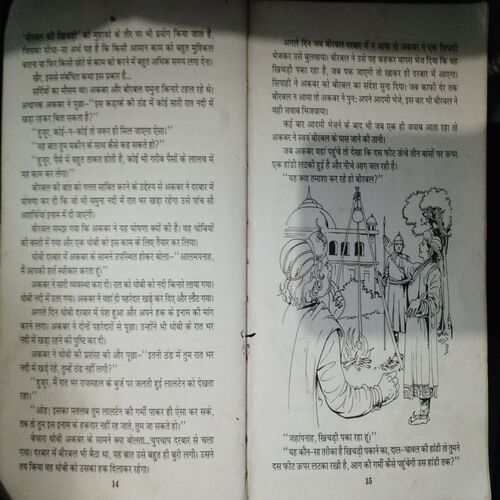 'बीरबल की खिचड़ी' को मुहावरे के तौर पर भी प्रयोग किया जाता है,
जिसका सीधा-सा अर्थ यह है कि किसी आसान काम को बहुत मुश्किल
बताना या फिर किसी छोटे से काम को करने में बहुत अधिक समय लगा देना।
खैर, इससे संबंधित कथा इस प्रकार है...
सर्दियों का मौसम था। अकबर और बीरबल यमुना किनारे टहल रहे थे।
अचानक अकबर ने पूछा–"इस कड़ाके की ठंड में कोई सारी रात नदी में
खड़ा रहकर बिता सकता है?"
"हुजूर, कोई-न-कोई तो जरूर ही मिल जाएगा ऐसा।"
"यह बात तुम यकीन के साथ कैसे कह सकते हो?"
"हुजूर, पैसे में बहुत ताकत होती है, कोई भी गरीब पैसों के लालच में
यह काम कर लेगा।"
बीरबल की बात को गलत साबित करने के उद्देश्य से अकबर ने दरबार में
घोषणा कर दी कि जो भी यमुना नदी में रात भर खड़ा रहेगा उसे पांच सौ
अशर्फियां इनाम में दी जाएंगी।
बीरबल समझ गया कि अकबर ने यह घोषणा क्यों की है। वह धोबियों
की बस्ती में गया और एक धोबी को इस काम के लिए तैयार कर लिया।
धोबी दरबार में अकबर के सामने उपस्थित होकर बोला–"आलमपनाह,
मैं आपकी शर्त स्वीकार करता हूं।"
अकबर ने सारी व्यवस्था करा दी। रात को धोबी को नदी किनारे लाया गया।
धोबी नदी में उतर गया। अकबर ने वहां दो पहरेदार खड़े कर दिए और लौट गया।
अगले दिन धोबी दरबार में पेश हुआ और अपने हक के इनाम की मांग
करने लगा। अकबर ने दोनों पहरेदारों से पूछा। उन्होंने भी धोबी के रात भर
नदी में खड़ा रहने की पुष्टि कर दी।
अकबर ने धोबी की प्रशंसा की और पूछा–"इतनी ठंड में तुम रात भर
नदी में खड़े रहे, तुम्हें ठंड नहीं लगी?"
"हुजूर, मैं रात भर राजमहल के बुर्ज पर जलती हुई लालटेन को देखता
रहा।"
"ओह! इसका मतलब तुम लालटेन की गर्मी पाकर ही ऐसा कर सके,
तब तो तुम इस इनाम के हकदार नहीं रह जाते, तुम जा सकते हो।"
बेचारा धोबी अकबर के सामने क्या बोलता...चुपचाप दरबार से चला
गया। दरबार में बीरबल भी बैठा था, यह बात उसे बहुत ही बुरी लगी। उसने
तय किया वह धोबी को उसका हक दिलाकर रहेगा।
14
अगले दिन जब बीरबल दरबार में न आया तो अकबर ने एक सिपाही
भेजकर उसे बुलवाया। बीरबल ने उसे यह कहकर वापस भेज दिया कि वह
खिचड़ी पका रहा है, जब पक जाएगी तो खाकर ही दरबार में आएगा।
सिपाही ने अकबर को बीरबल का संदेश सुना दिया। जब काफी देर तक
बीरबल न आया तो अकबर ने पुनः अपने आदमी भेजे, इस बार भी बीरबल ने
वही जवाब भिजवाया।
कई बार आदमी भेजने के बाद भी जब एक ही जवाब आता रहा तो
अकबर ने स्वयं बीरबल के पास जाने की ठानी।
जब अकबर वहां पहुंचे तो देखा कि दस फीट ऊंचे तीन बांसों पर ऊपर
एक हांडी लटकी हुई है और नीचे आग जल रही है।
"यह क्या तमाशा कर रहे हो बीरबल?"
"जहांपनाह, खिचड़ी पका रहा हूं।"
"यह कौन-सा तरीका है खिचड़ी पकाने का, दाल-चावल की हांडी तो तुमने
दस फीट ऊपर लटका रखी है, आग की गर्मी कैसे पहुंचेगी उस हांडी तक?"
15